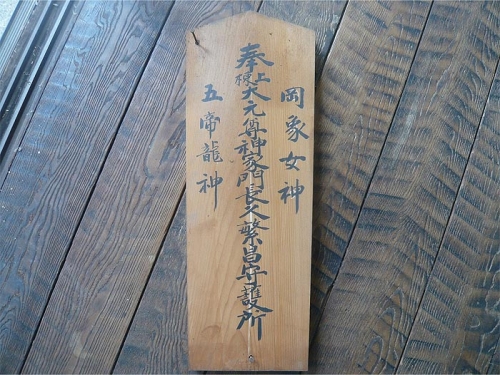 岡象女神
奉上棟大元尊神家門長久繁昌守護所
五帝龍神